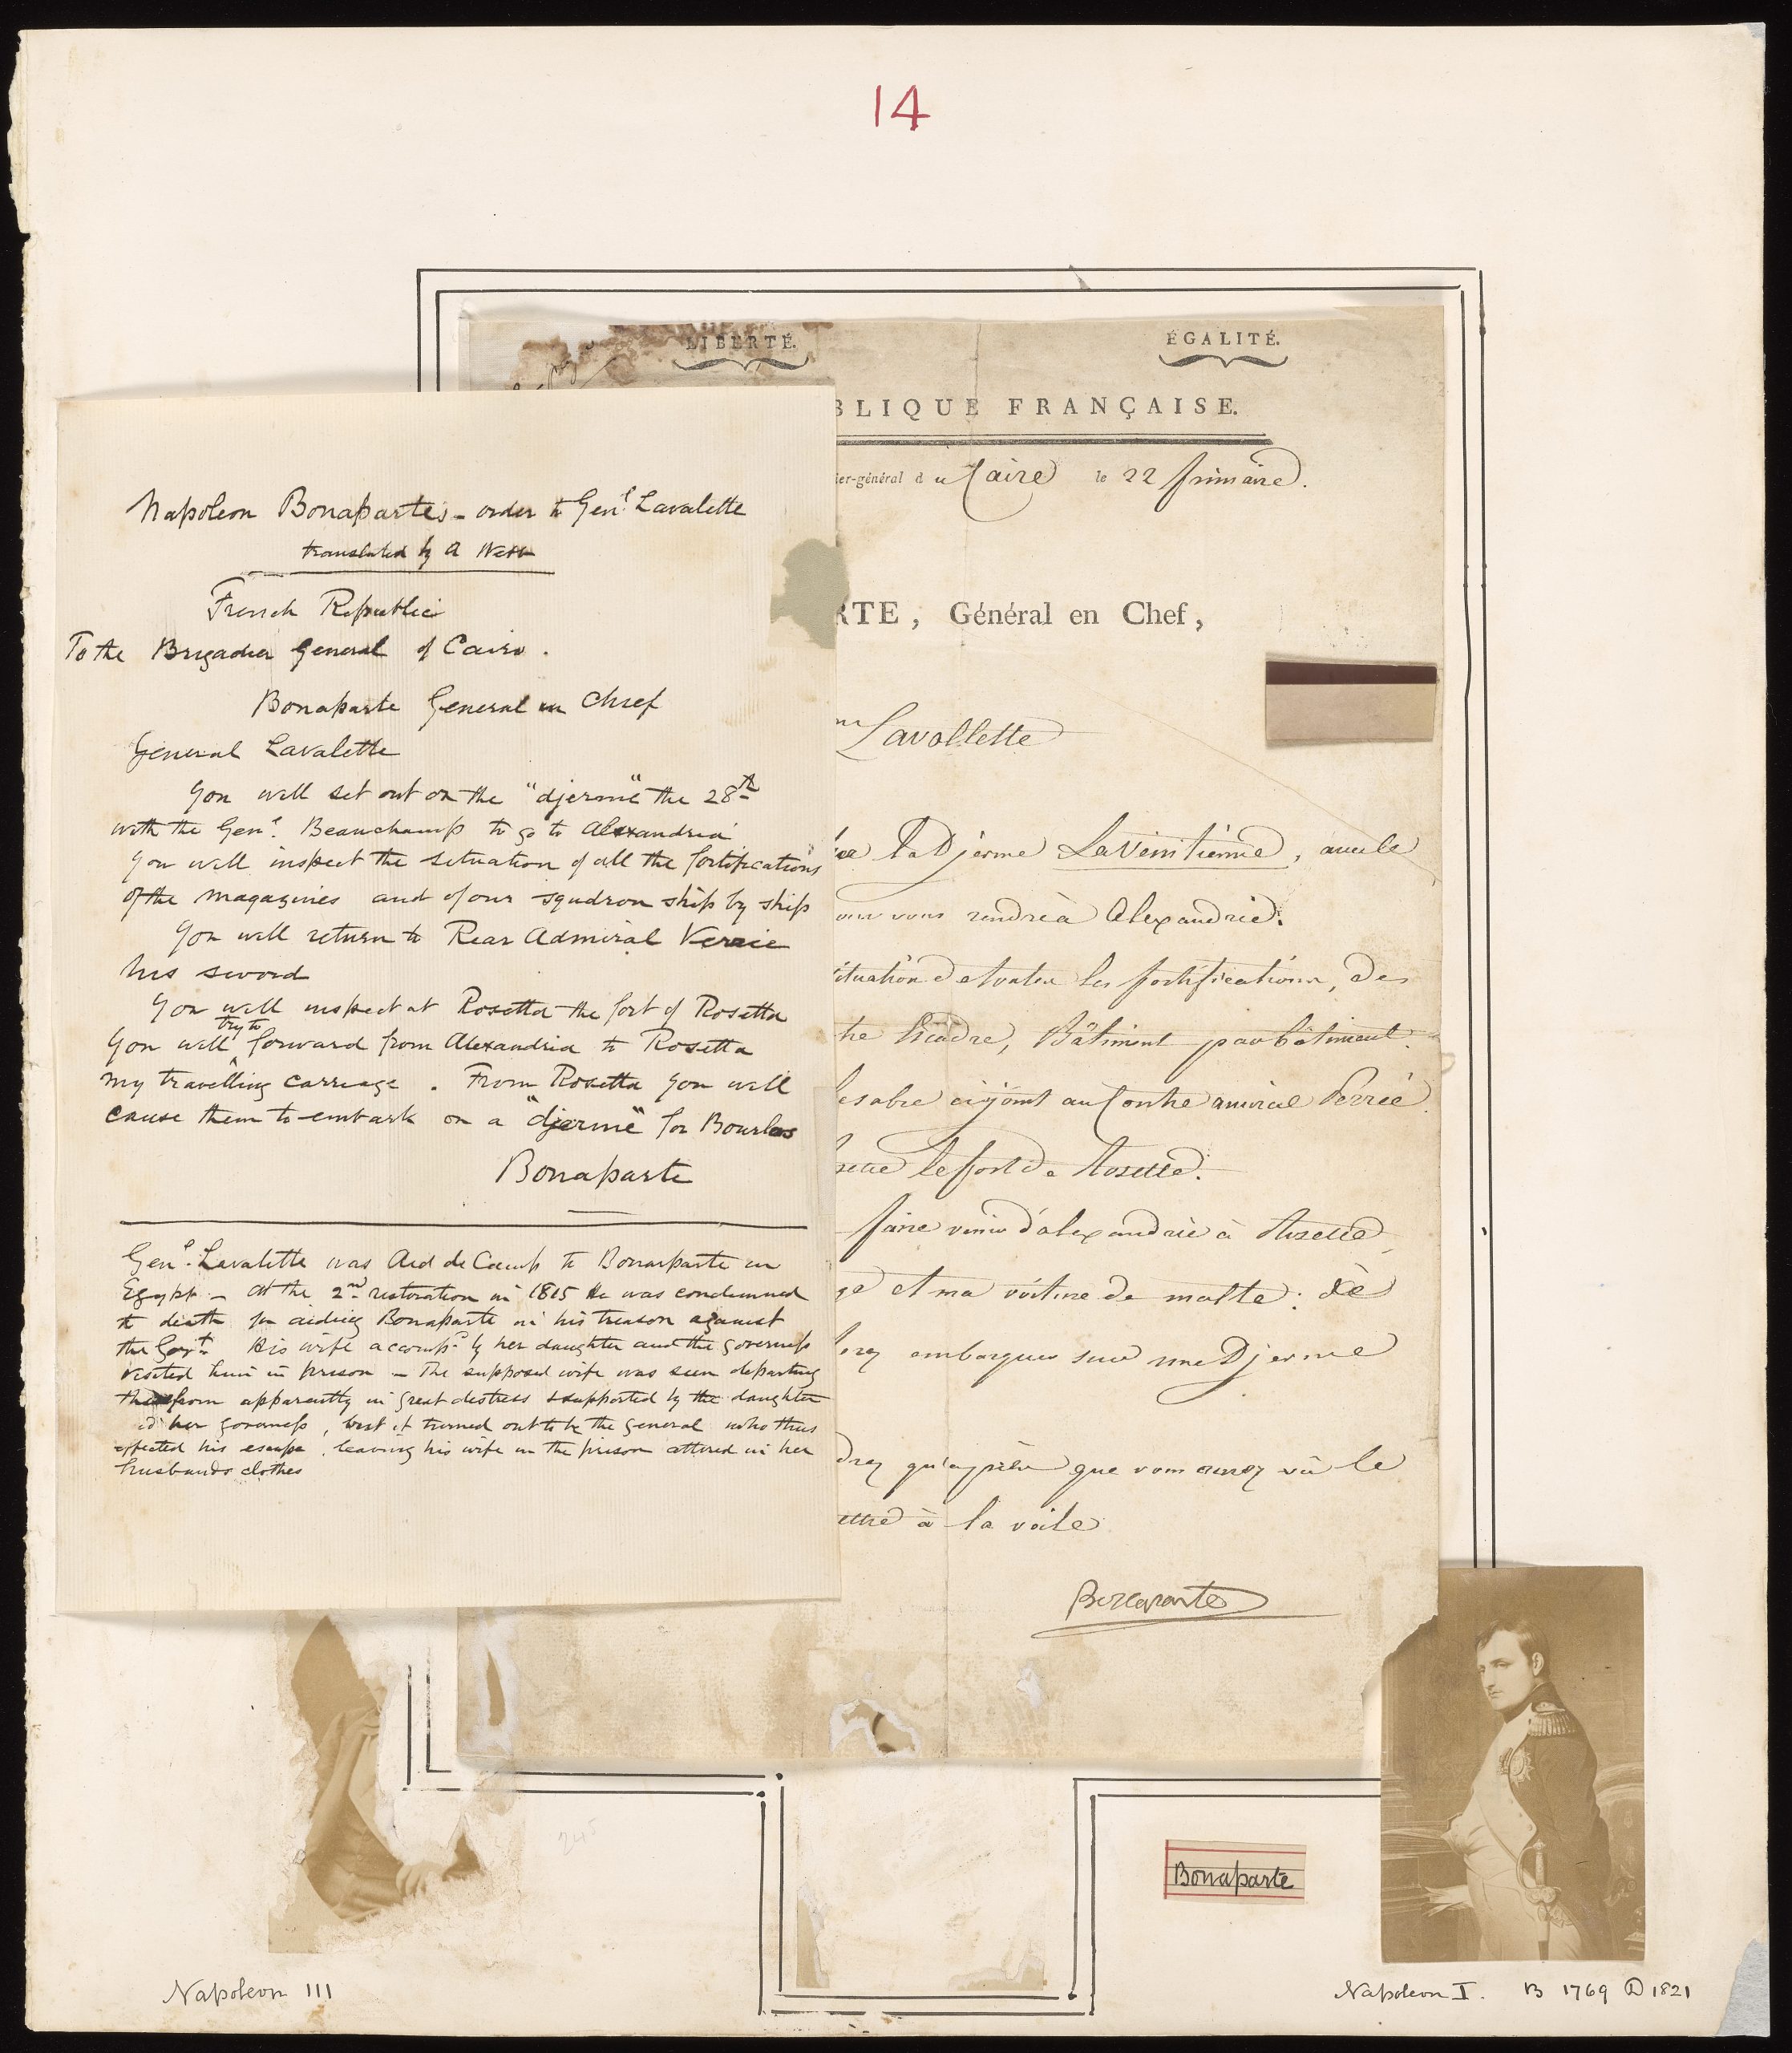 14
LIBERTÉ.
ÉGALITÉ.
BLIQUE FRANÇAISE.
ier-général du Caire le 22 frimaire.
RTE, Général en Chef,
Lavallette
La Djerme La Vénitienne, avec le
our vous rendre à Alexandrie.
situation de toutes les fortifications, des
tre Escadre, Bâtiment par bâtiment.
le sabre cijoint au Contre amiral Perrée.
le fort de Rosette.
faire venir d'alexandrie à Rosette,
et ma voiture de malte: de
embarquer sur une Djerme
drez qu'après que vous aurez vu le
ettre à la voile
Bonaparte
Napoleon Bonaparte's - order to Genl. Lavalette
translated by A
French Republic
To the Brigadier General of Cairo.
Bonaparte General in Chief
General Lavalette
You will set out on the "djerme" the 28th
with the Genl. Beauchamp to go to Alexandria
You will inspect the situation of all the fortifications
of the magazines and of our squdron ship by ship
You will return to Rear Admiral
his sword
You will inspect at Rosetta the fort of Rosetta
try to
You will forward from Alexandria to Rosetta
my travelling carriage. From Rosetta you will
cause them to embark on a "djerme" for Bourlos
Bonaparte
Genl. Lavalette was Aid de Camp to Bonarparte in
Egypt - At the 2nd restoration in 1815 He was condemned
to death for aiding Bonaparte in his treason against
the Govt. His wife accompd. by her daughter and the governess
visited him in prison - The supposed wife was seen departing
therefrom apparently in great distress & supported by the daughter
& her governess, but it turned out to be the general who thus
effected his escape, leaving his wife in the prison attired in her
husbands clothes
245
Bonaparte
Napoleon III
Napoleon I. B 1769 D 1821